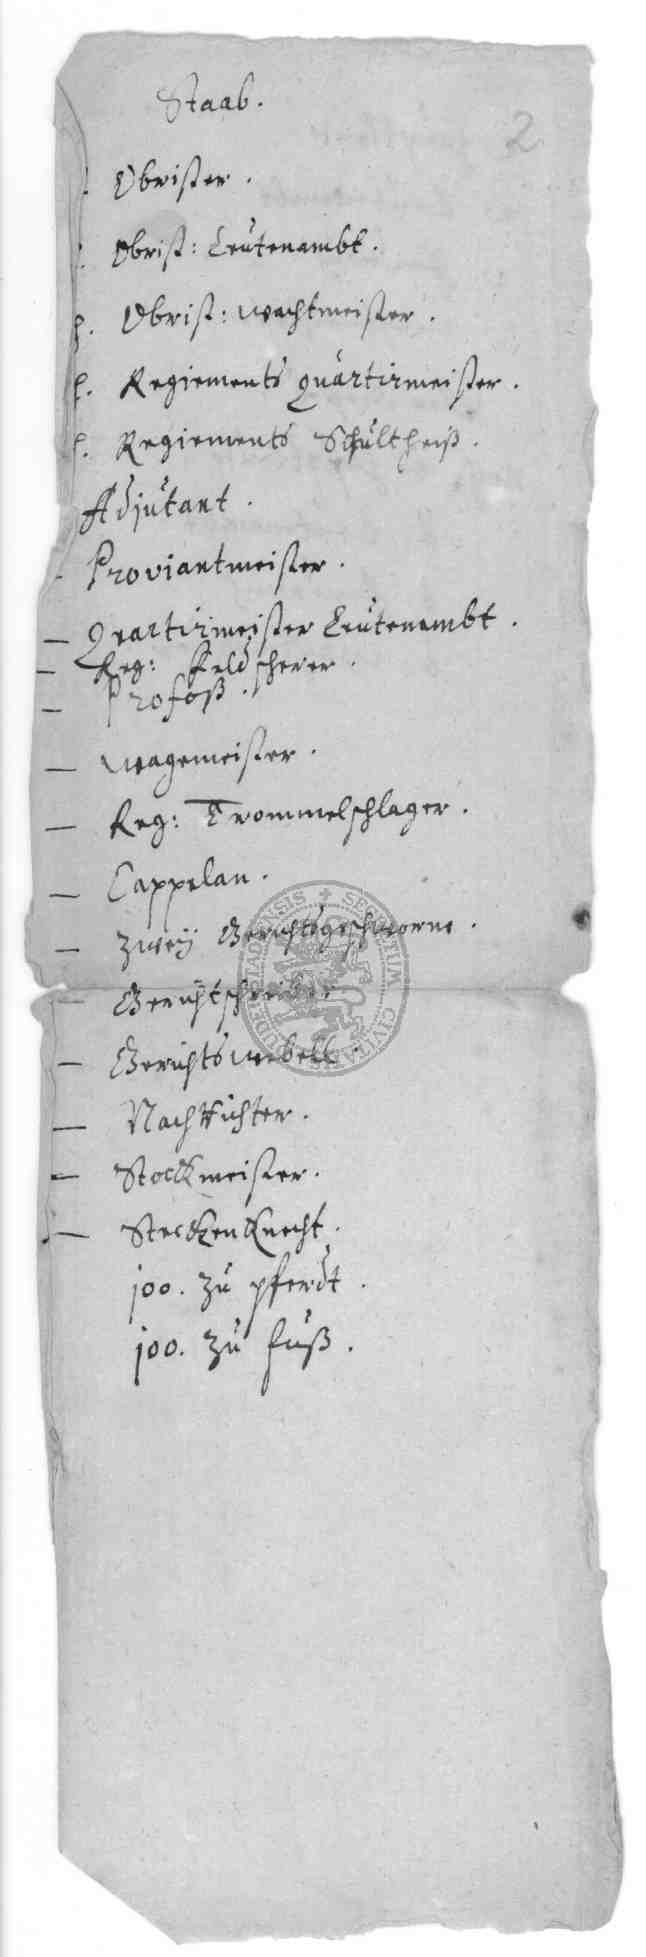 Staab.
2
Obrister.
Obrist: Leutenambt.
Obrist: wachtmeister.
Regiements Quartirmeister.
Regiements Schultheiß.
Adjutant.
Proviantmeister.
Quartirmeister Leutenambt.
Reg: Feldscherer.
Profoß.
wagemeister.
Reg: Trommelschlager.
Cappelan.
zweÿ Gerichtsgeschworne.
Gerichtschreiber
Gerichtswebell.
Nachrichter.
Stockmeister.
SteckenKnecht.
100. zu pferdt.
100. zu fuß.